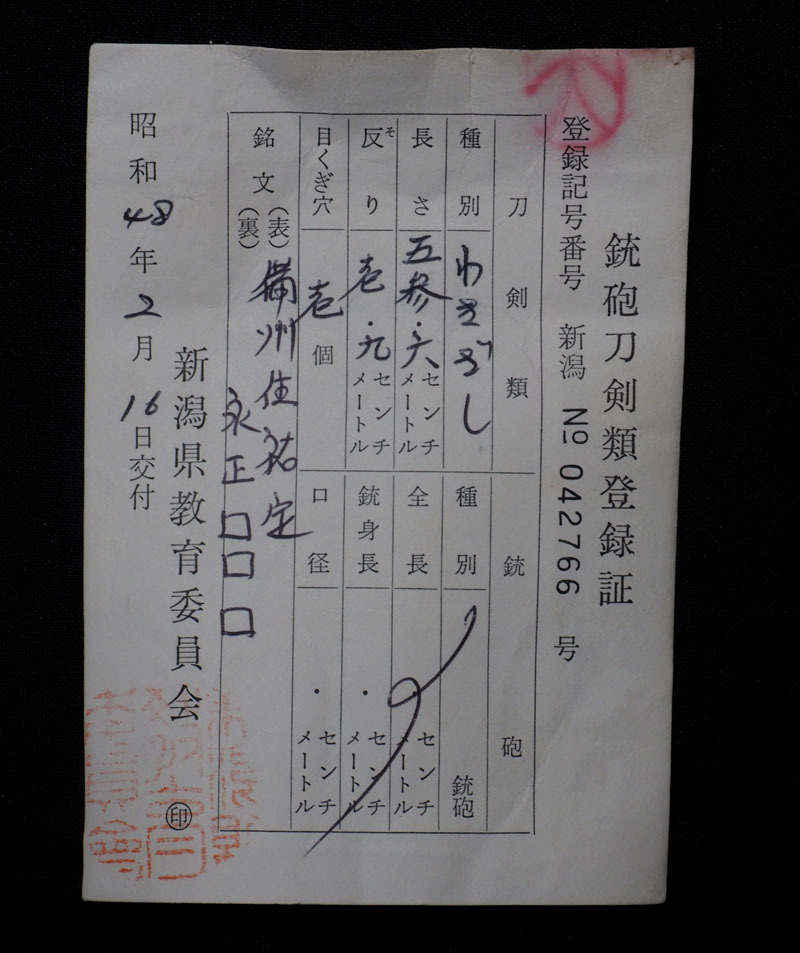 銃砲刀剣類登録証
登録記号番号 新潟 № 042766 号
刀剣類
種別 わきざし
長さ 五参.六 センチメートル
反り そ 壱.九 センチメートル
目くぎ穴 壱個
銃砲
種別 銃砲
全長 センチメートル
銃身長 . センチメートル
口径 . センチメートル
銘文 (表) 備州住祐定
(裏) 永正□□□
新潟県教育委員会 ㊞
昭和48年2月16日交付